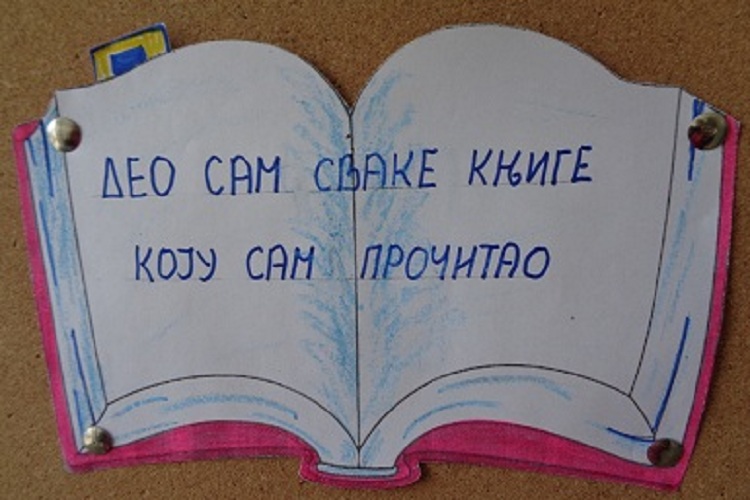 ДЕО САМ СВАКЕ КЊИГЕ
КОЈУ САМ ПРОЧИТАО